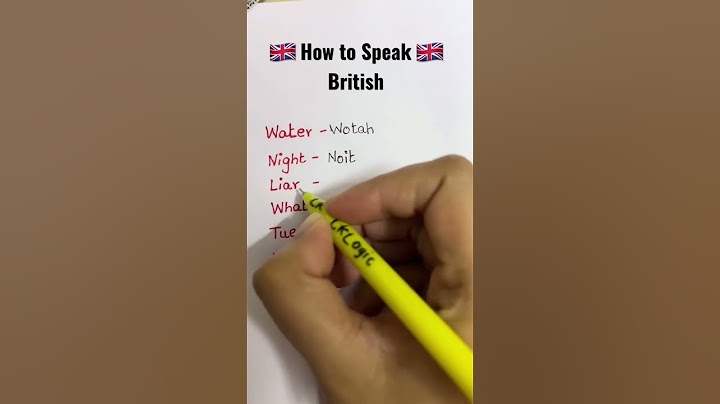 🇬🇧 How to Speak 🇬🇧
British
Water - Wotah
Night - Noit
Liar -
What
Tue
LKLogic